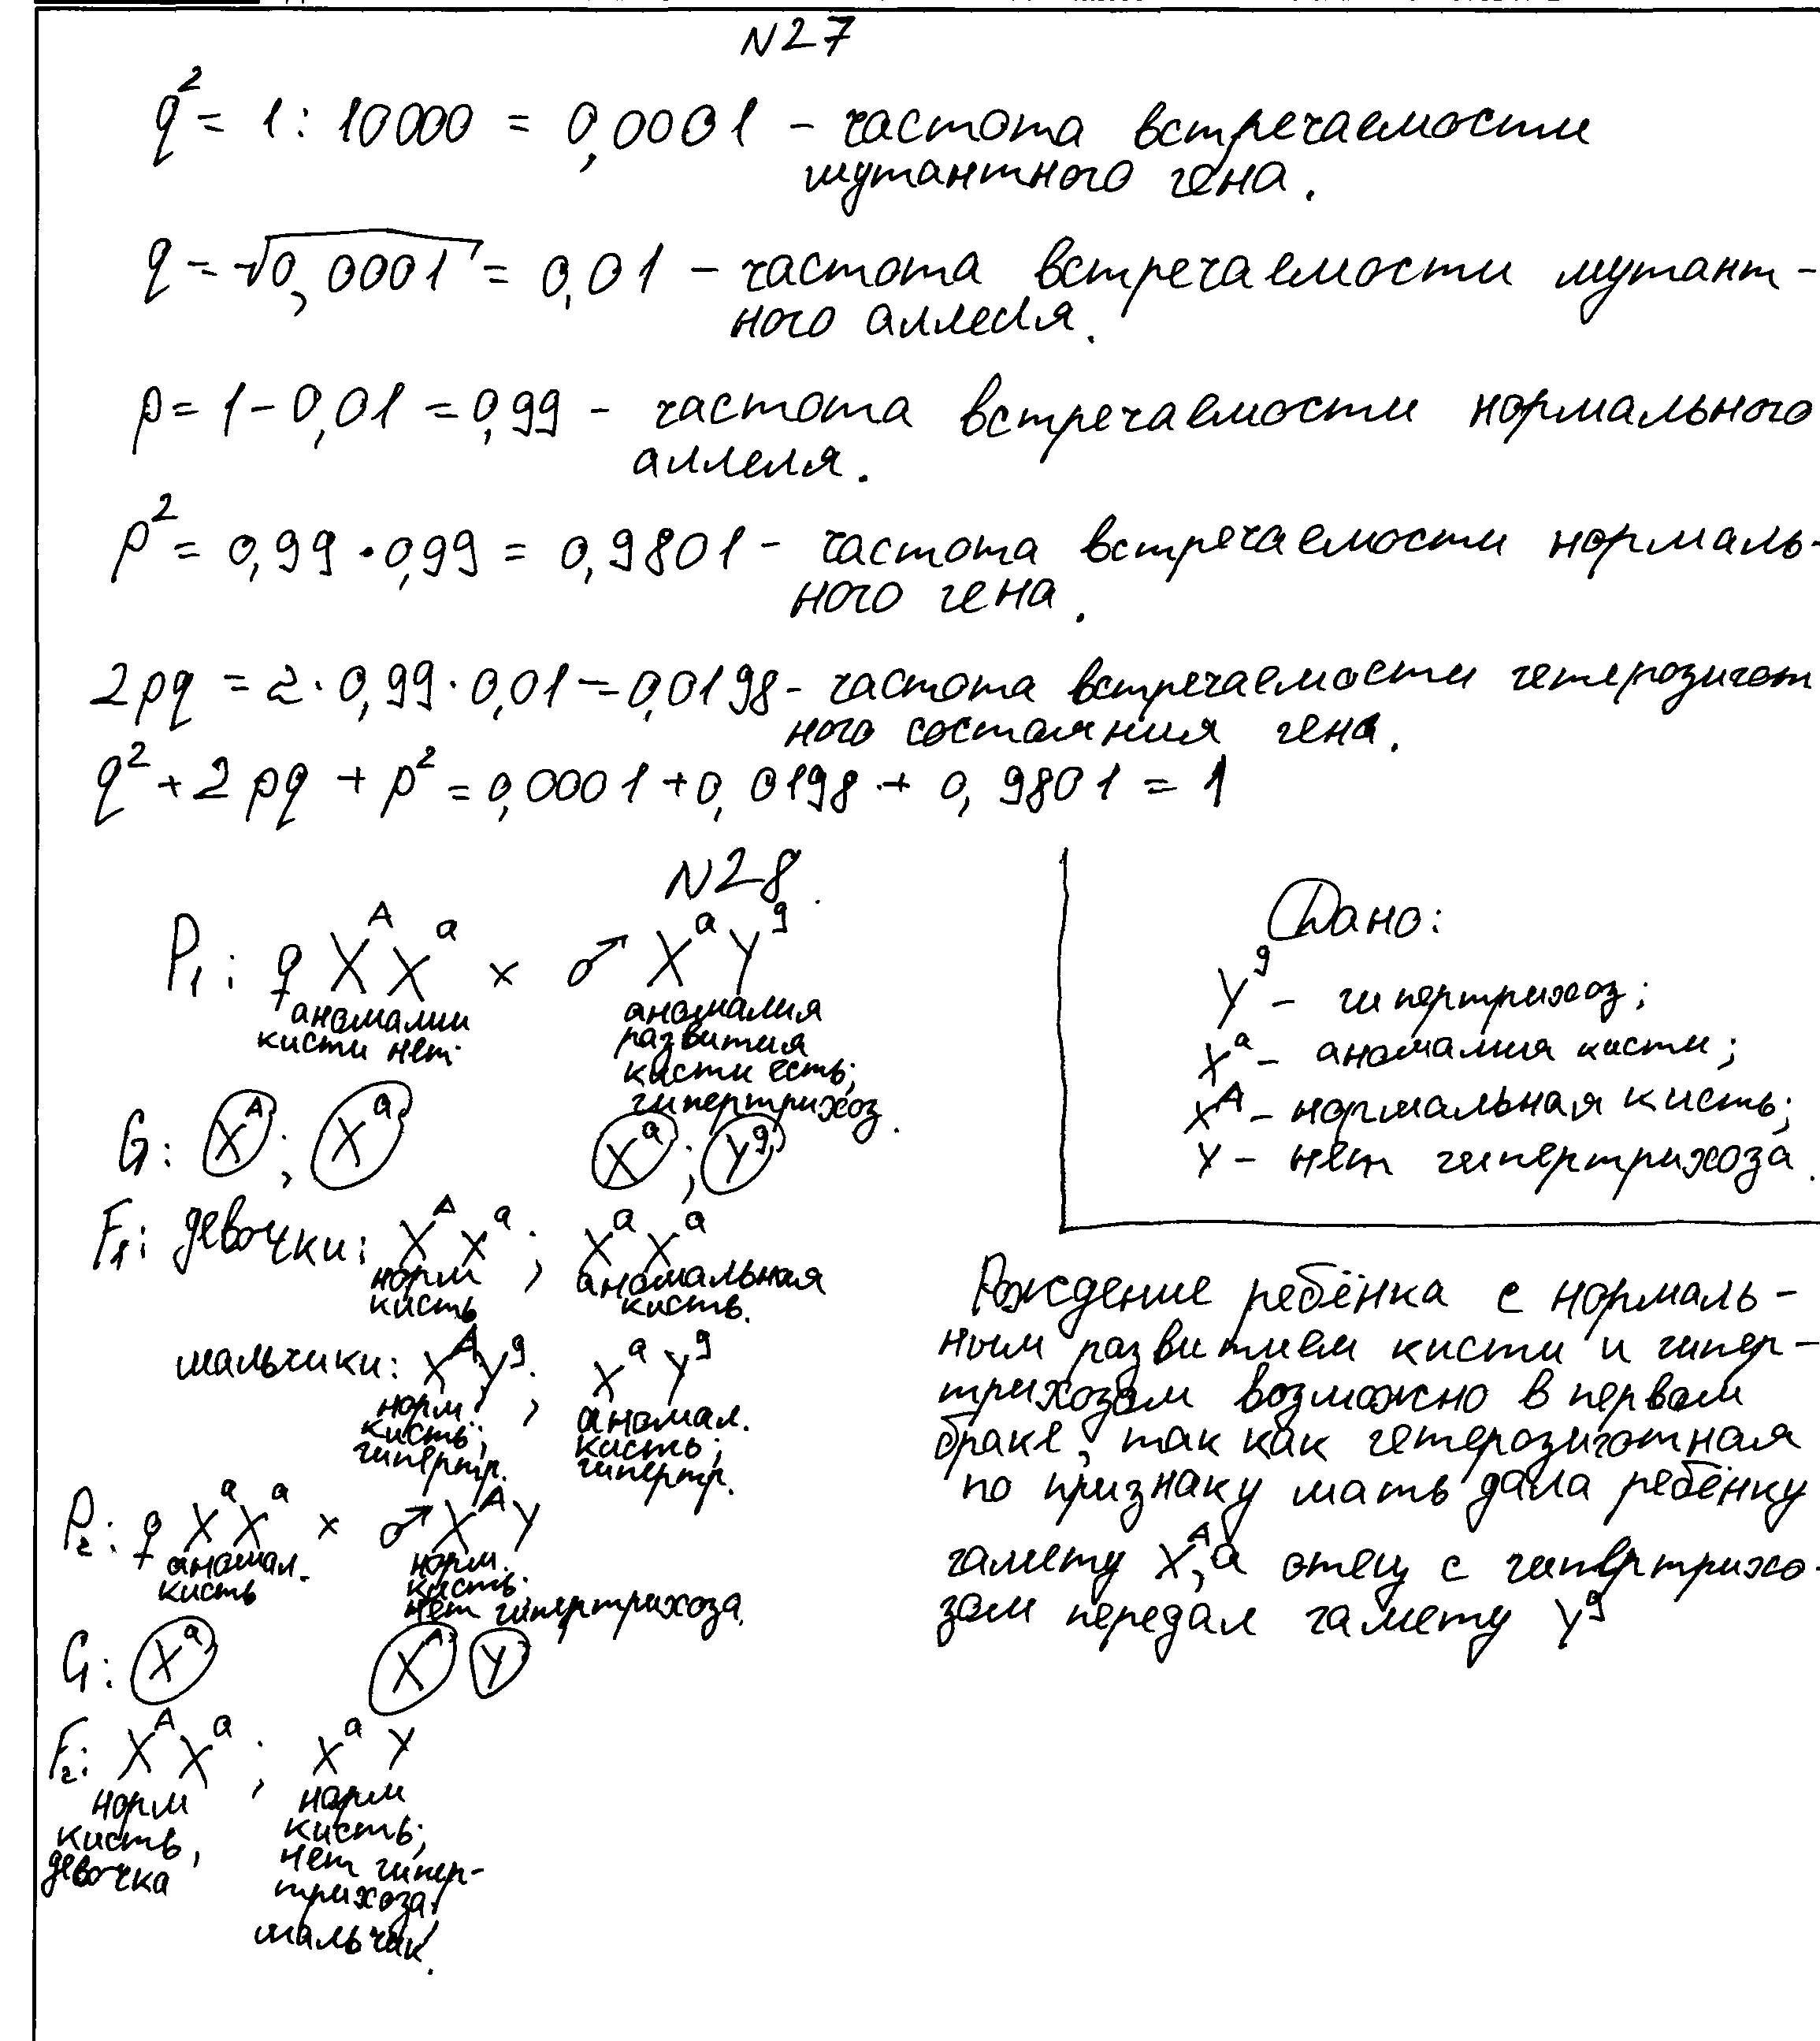 N27
q² = 1 : 10000 = 0,0001 – частота встречаемости
мутантного гена.
q = √0,0001 = 0,01 – частота встречаемости мутант-
ного аллеля.
p = 1 – 0,01 = 0,99 – частота встречаемости нормального
аллеля.
p² = 0,99 · 0,99 = 0,9801 – частота встречаемости нормаль-
ного гена.
2pq = 2 · 0,99 · 0,01 = 0,0198 – частота встречаемости гетерозигот
ного состояния гена.
q² + 2pq + p² = 0,0001 + 0,0198 + 0,9801 = 1
N28.
P₁: ♀ XᴬXᵃ × ♂ XᵃYᵍ
аномалии
кисти нет
аномалия
развития
кисти есть;
гипертрихоз.
G: Xᴬ; Xᵃ Xᵃ; Yᵍ
F₁: девочки: XᴬXᵃ; XᵃXᵃ
норм
кисть
аномальная
кисть.
мальчики: XᴬYᵍ; XᵃYᵍ
норм
кисть;
гипертр.
аномал.
кисть;
гипертр.
P₂: ♀ XᵃXᵃ × ♂ XᴬY
аномал.
кисть
норм.
кисть.
нет гипертрихоза.
G: Xᵃ Xᴬ Y
F₂: XᴬXᵃ; XᵃY
норм
кисть,
девочка
норм
кисть;
нет гипер-
трихоза,
мальчик.
Дано:
Yᵍ – гипертрихоз;
Xᵃ – аномалия кисти;
Xᴬ – нормальная кисть;
Y – нет гипертрихоза.
Рождение ребёнка с нормаль-
ным развитием кисти и гипер-
трихозом возможно в первом
браке, так как гетерозиготная
по признаку мать дала ребёнку
гамету Xᴬ, а отец с гипертрихо-
зом передал гамету Yᵍ